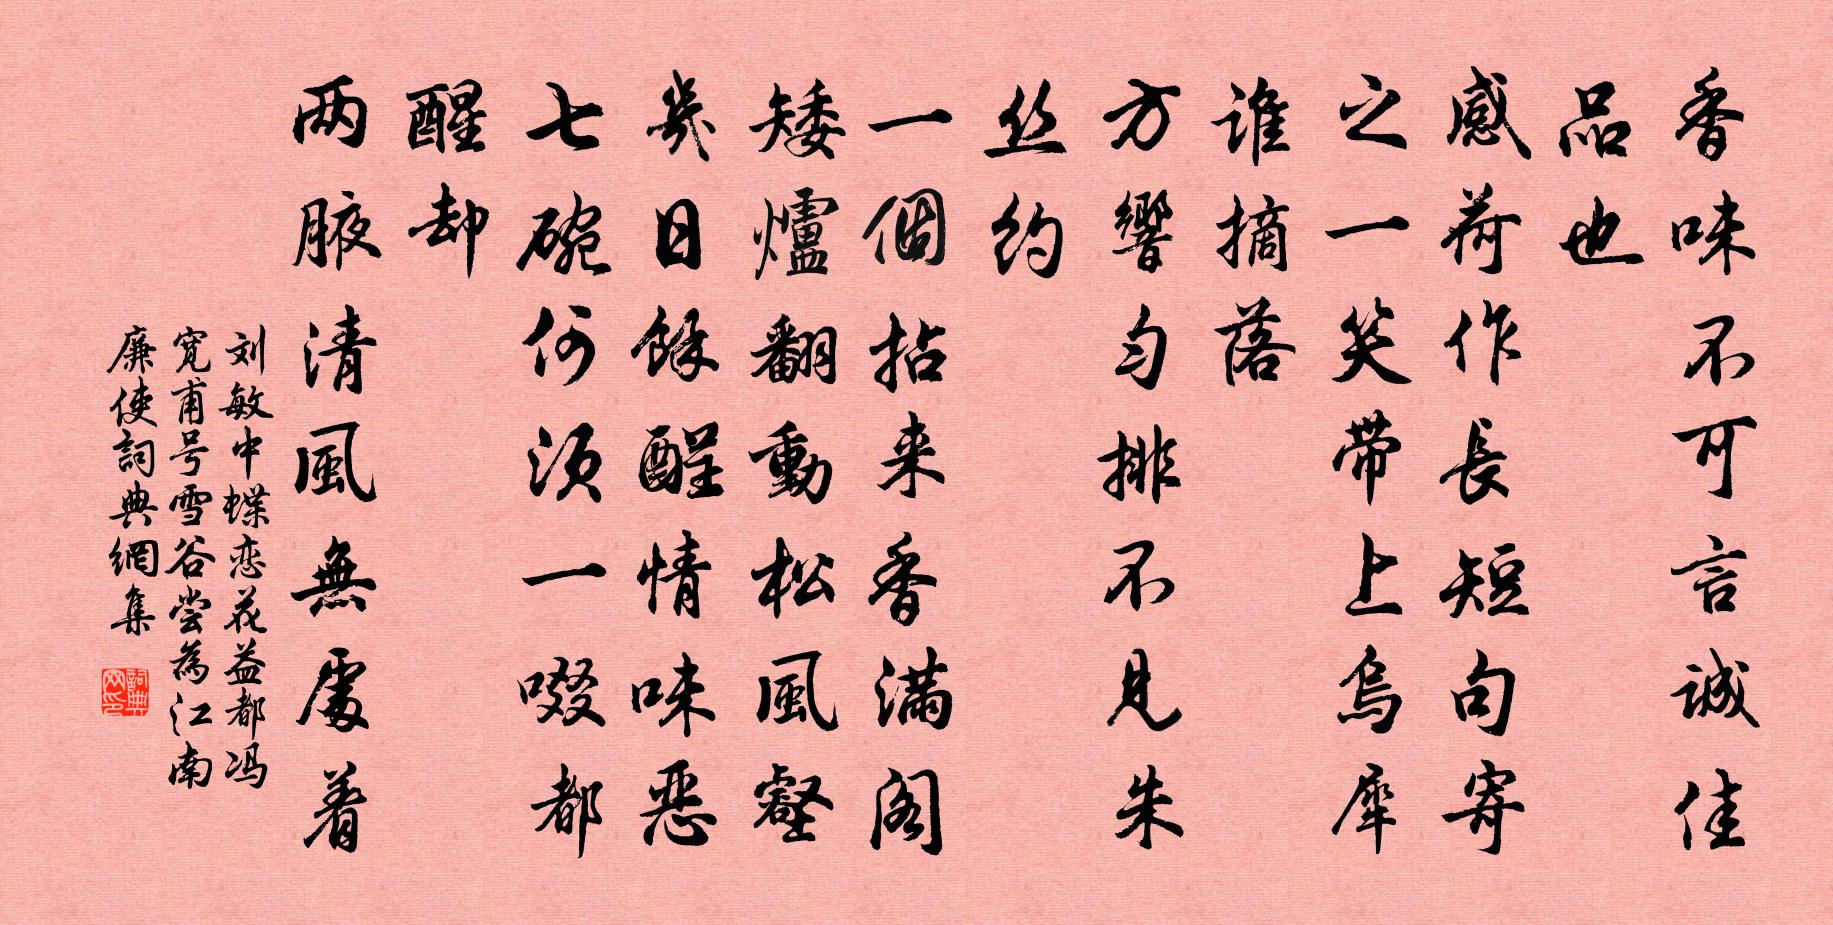 香味不可言誠佳
品也
感荷作長短句寄
之一笑帶上烏犀
誰摘落
方響勻排不見朱
丝約
一個拈来香滿閣
矮爐翻動松風壑
幾日餘酲情味恶
七碗何須一啜都
醒却
两腋清風無處着
刘敏中蝶恋花益都冯
寬甫号雪谷尝為江南
廉使詞典網集
詞典网印